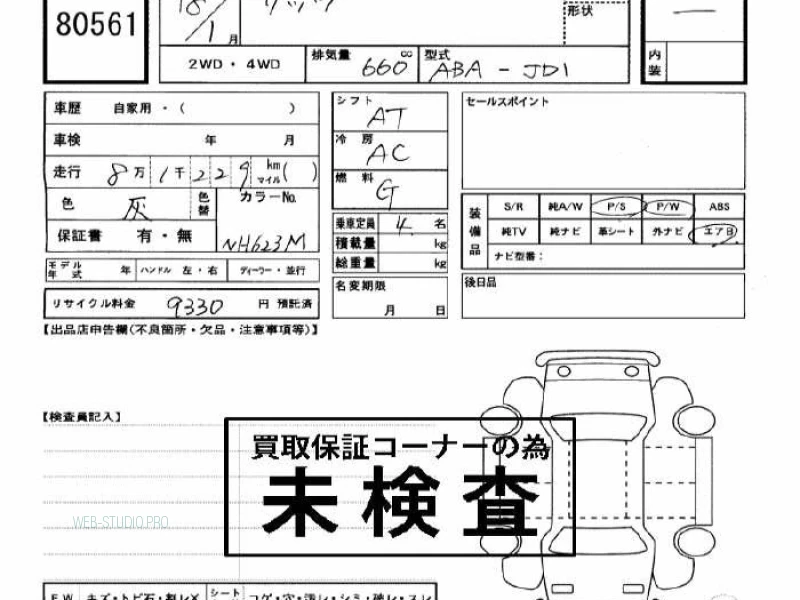 80561
18/1 月
形状
内装
2WD・4WD
排気量 660 cc
型式 ABA - JD1
車歴 自家用・( )
車検 年 月
走行 8万1千229 km マイル( )
色 灰 色替
カラーNo. NH623M
保証書 有・無
モデル年式 年 ハンドル 左・右 ディーラー・並行
リサイクル料金 9330 円 預託済
シフト AT
冷房 AC
燃料 G
乗車定員 4 名
積載量 kg
総重量 kg
名変期限 月 日
セールスポイント
装備品
S/R 純A/W P/S P/W ABS
純TV 純ナビ 革シート 外ナビ エアB
ナビ型番:
後日品
【出品店申告欄(不良箇所・欠品・注意事項等)】
【検査員記入】
買取保証コーナーの為
未検査
WEB-STUDIO.PRO